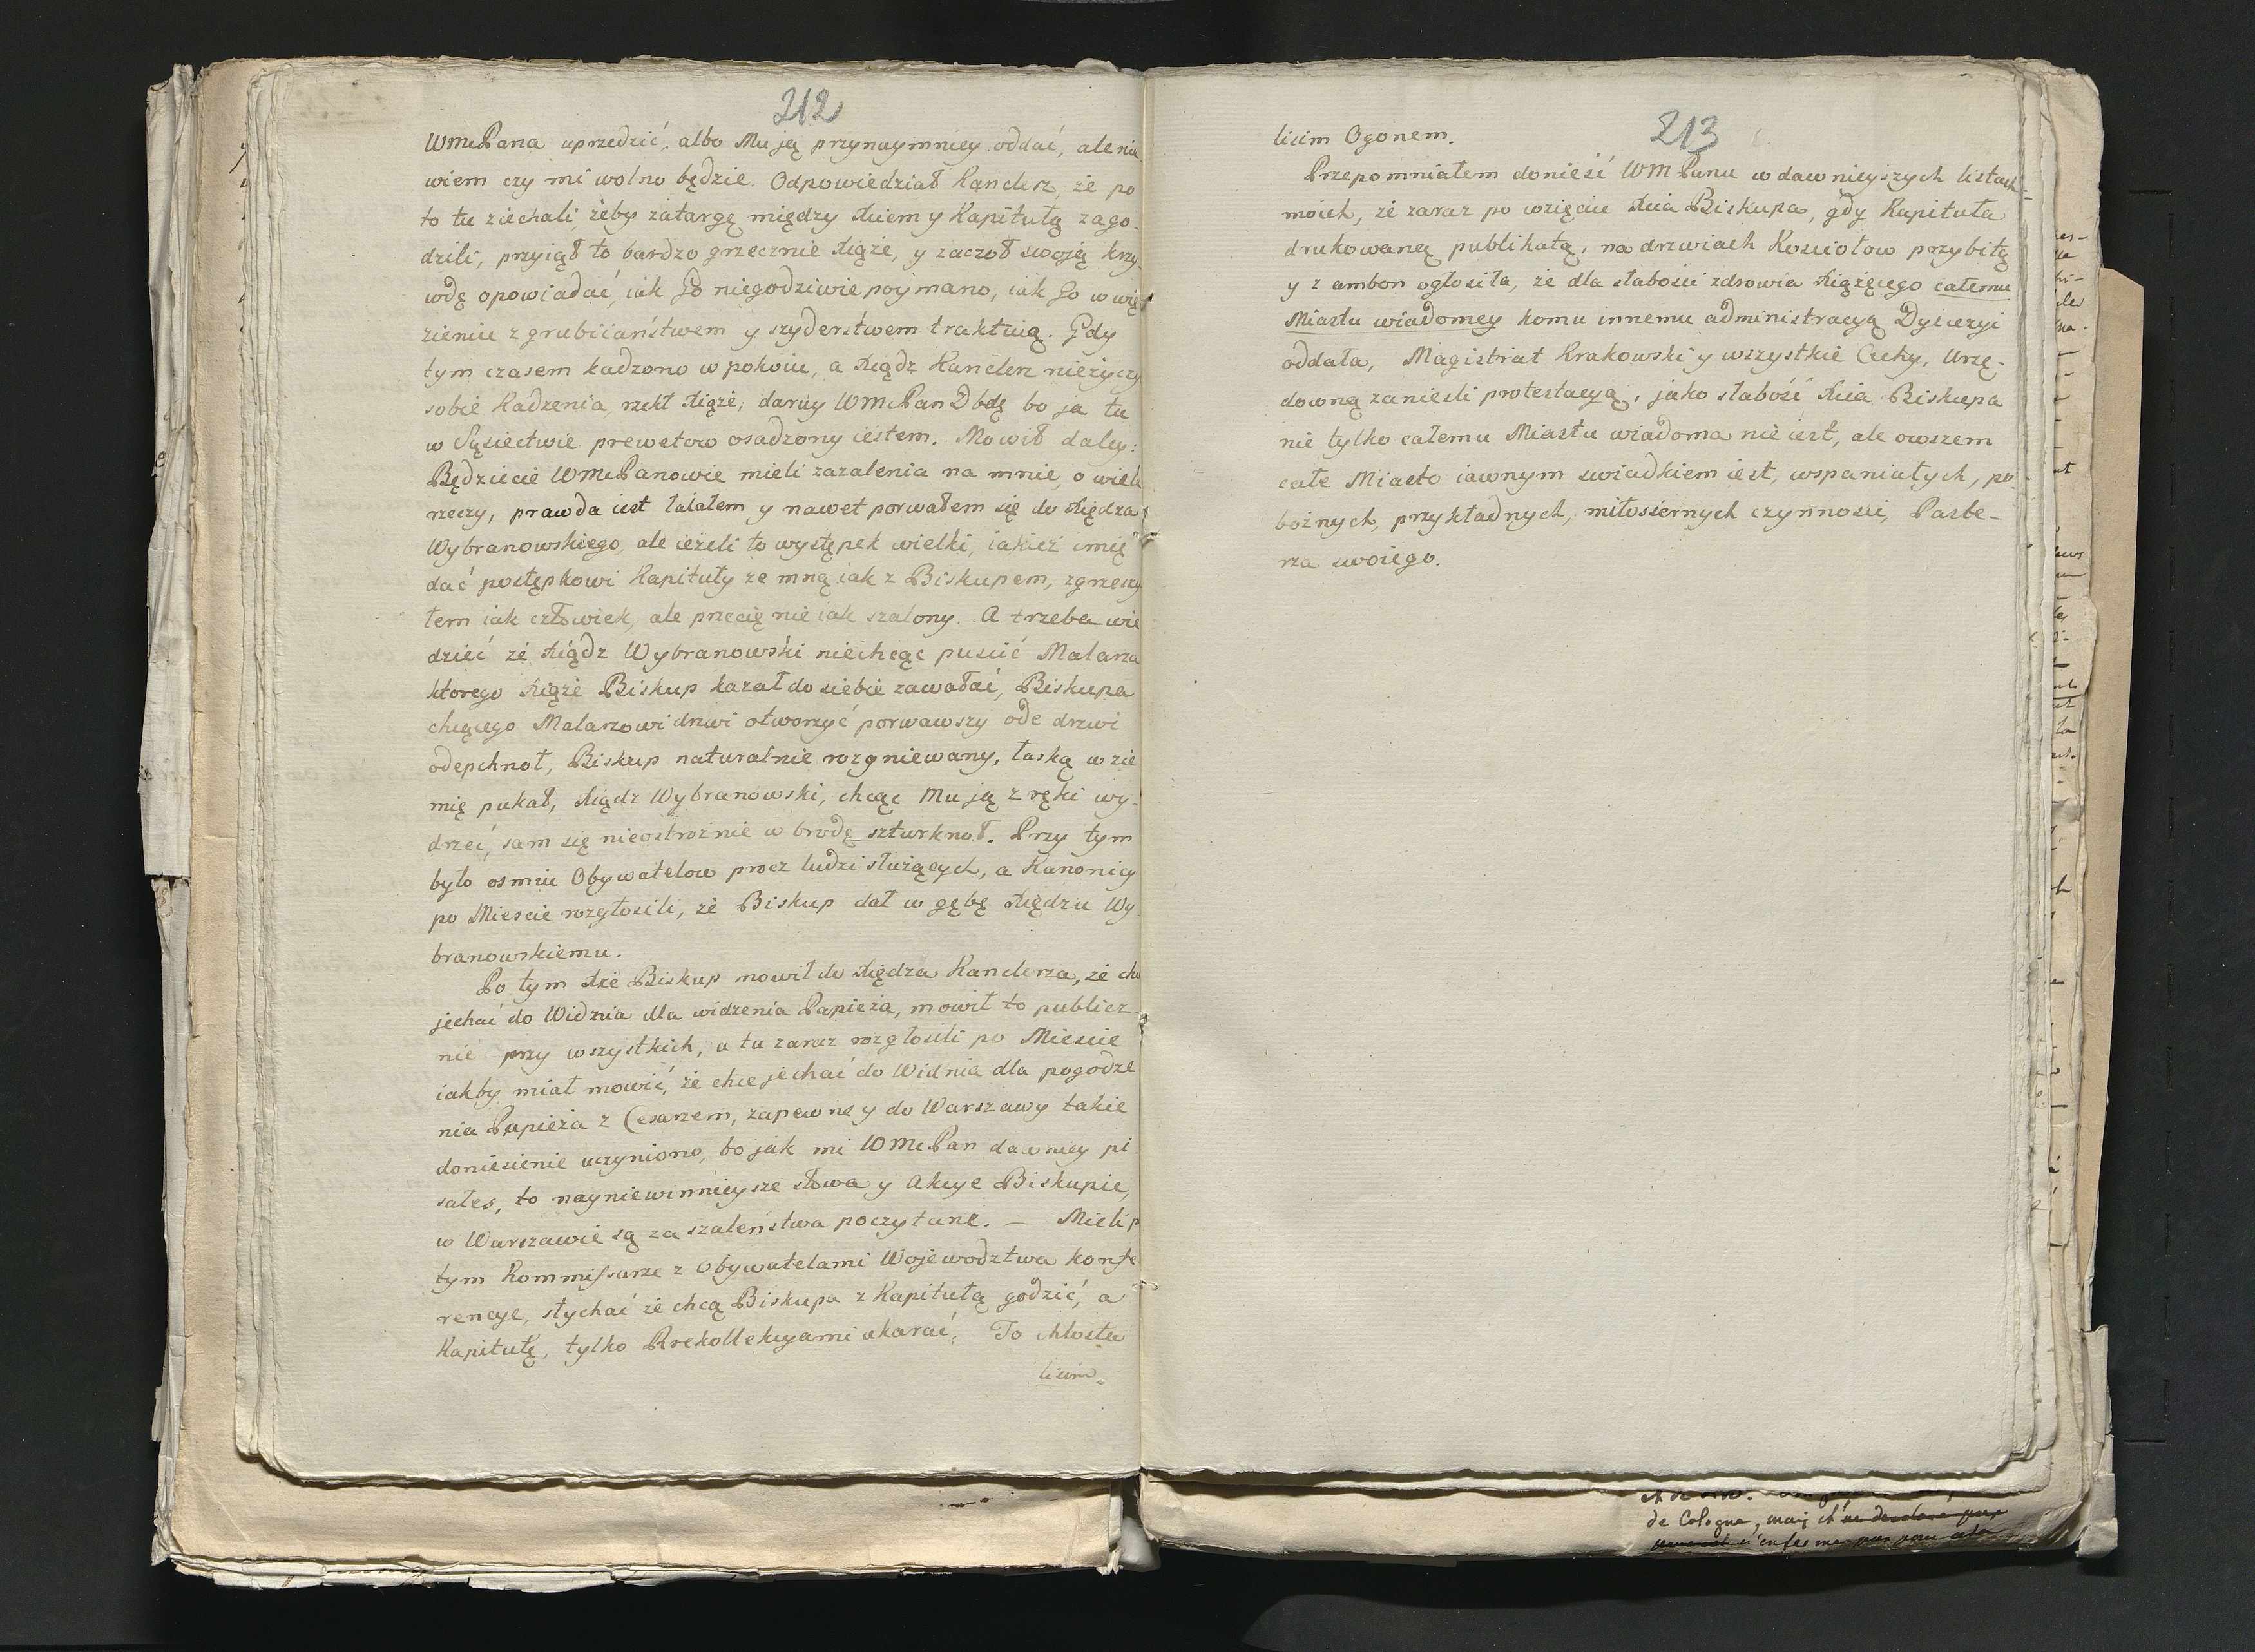 212
WMcPana uprzedzić, albo Mu ją przynaymniey oddać, ale nie
wiem czy mi wolno będzie. Odpowiedział Kanclerz, że po
to tu ziechali, żeby zatargę między Xciem y Kapitułą zago-
dzili, przyiął to bardzo grzecznie Xiąże, y zaczoł swoję krzy-
wdę opowiadać, iak Go niegodziwie poymano, iak Go w wię
zieniu z grubiiaństwem y szyderstwem traktuią. Gdy
tym czasem kadzono w pokoiu, a Xiądz Kanclerz nieżyczy
sobie Kadzenia, rzekł Xiąże, daruy WMcPan Dbdę bo ja tu
w Sąsiectwie prewetow osadzony iestem. Mowił daley:
Będziecie WMcPanowie mieli zazalenia na mnie, o wiele
rzeczy, prawda iest łaiałem y nawet porwałem się do Xiędza
Wybranowskiego, ale ieżeli to występek wielki, iakież imię
dać postępkowi Kapituły ze mną iak z Biskupem, zgrzeszy
łem iak człowiek, ale przecię nie iak szalony. A trzeba wie
dzieć że Xiądz Wybranowski niechcąc puscić Malarza
ktorego Xiąże Biskup kazał do siebie zawołać, Biskupa
chcącego Malarzowi drzwi otworzyć porwawszy ode drzwi
odepchnoł, Biskup naturalnie rozgniewany, laską w zie
mię pukał, Xiądz Wybranowski, chcąc Mu ją z ręki wy-
drzeć, sam się nieostrożnie w brodę szturknoł. Przy tym
było osmiu Obywatelow procz ludzi służących, a Kanonicy
po Miescie rozgłosili, że Biskup dał w gębę Xiędzu Wy
branowskiemu.
Po tym Xże Biskup mowił do Xiędza Kanclerza, że chce
jechać do Widnia dla widzenia Papieża, mowił to publicz-
nie przy wszystkich, a tu zaraz rozgłosili po Miescie
iakby miał mowić, że chce jechać do Widnia dla pogodze
nia Papieża z Cesarzem, zapewne y do Warszawy takie
doniesienie uczyniono, bo jak mi WMcPan dawniey pi
sałeś, to nayniewinnieysze słowa y Akcye Biskupie,
w Warszawie są za szaleństwa poczytane. — Mieli p
tym Kommissarze z Obywatelami Wojewodztwa konfe
rencye, słychać że chcą Biskupa z Kapitułą godzić, a
Kapitułę, tylko Rrekollekcyami ukarać. To chłosta
lisim
213
lisim Ogonem.
Przepomniałem donieść WMPanu w dawnieyszych listach
moich, że zaraz po wzięciu Xcia Biskupa, gdy Kapituła
drukowaną publikatą, na drzwiach Kosciołow przybitą
y z ambon ogłosiła, że dla słabości zdrowia Xiążęcego całemu
Miastu wiadomey komu innemu administracyą Dyiecezyi
oddała, Magistrat Krakowski y wszystkie Cechy, Urzę-
downą zaniesli protestacyą, jako słabość Xcia Biskupa
nie tylko całemu Miastu wiadoma nie iest, ale owszem
całe Miasto iawnym swiadkiem iest, wspaniałych, po-
bożnych, przykładnych, miłosiernych czynnosci, Paste-
rza swoiego.
de Cologne, mais